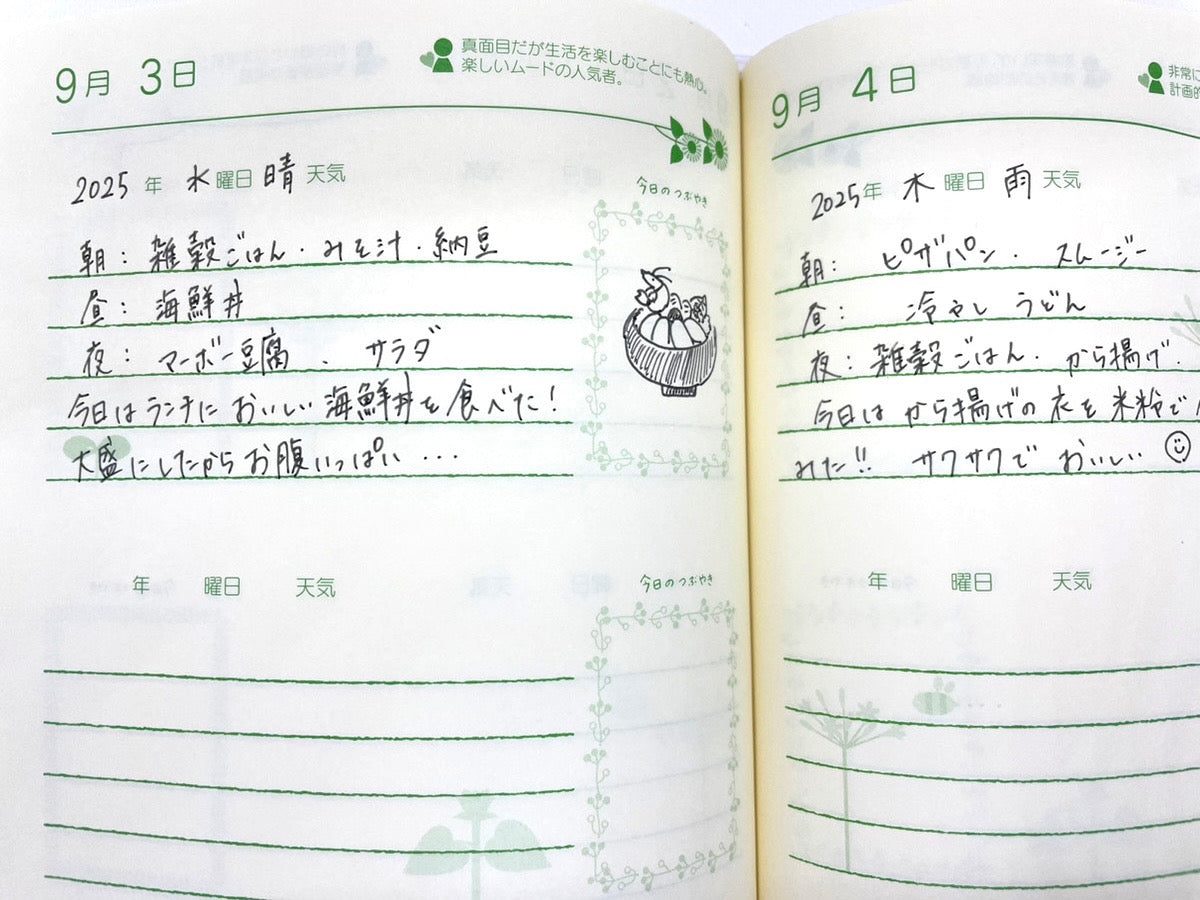 9月 3日
真面目だが生活を楽しむことにも熱心。
楽しいムードの人気者。
2025 年 水 曜日 晴 天気
今日のつぶやき
朝: 雑穀ごはん・みそ汁・納豆
昼: 海鮮丼
夜: マーボー豆腐 、 サラダ
今日はランチに おいしい 海鮮丼を食べた!
大盛にしたからお腹いっぱい ...
年 曜日 天気
今日のつぶやき
9月 4日
非常に
計画的
2025年 木 曜日 雨 天気
朝: ピザパン . スムージー
昼: 冷やし うどん
夜: 雑穀ごはん. から揚げ.
今日は から揚げの衣を米粉で
みた!! サクサクで おいしい
年 曜日 天気